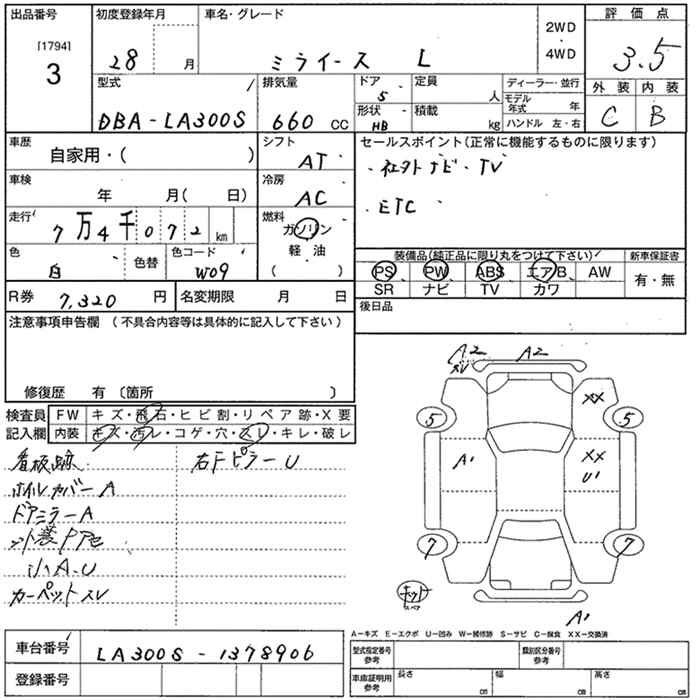 出品番号 初度登録年月 車名・グレード 2WD・4WD 評価点
[1794]
3 28 月 ミライース L 3.5
型式 排気量 ドア 5 定員 人 ディーラー・並行 外装 内装
DBA-LA300S 660 CC 形状 HB 積載 kg モデル年式 年 C B
ハンドル 左・右
車歴 自家用・( ) シフト AT セールスポイント(正常に機能するものに限ります)
・社外ナビ・TV
車検 年 月( 日) 冷房 AC
・ETC
走行 7万4千072km 燃料 ガソリン
軽油
( )
色 白 色替 色コード W09
装備品(純正品に限り丸をつけて下さい) 新車保証書
PS PW ABS エアB AW 有・無
SR ナビ TV カワ
R券 7,320 円 名変期限 月 日 後日品
注意事項申告欄(不具合内容等は具体的に記入して下さい)
修復歴 有〔箇所 〕
検査員 FW キズ・飛石・ヒビ割・リペア跡・X要
記入欄 内装 キズ・汚レ・コゲ・穴・スレ・キレ・破レ
看板跡 右Fピラー U
ホイルカバー A
ドアミラー A
小A.U
カーペットスレ
A2 A2
スレ
XX
5 5
A1 XX
U1
7 7
A1
A-キズ E-エクボ U-凹み W-補修跡 S-サビ C-腐食 XX-交換済
車台番号 LA300S-1378906
登録番号
型式指定番号 参考 類別区分番号 参考
車庫証明用 参考 長さ cm 幅 cm 高さ cm